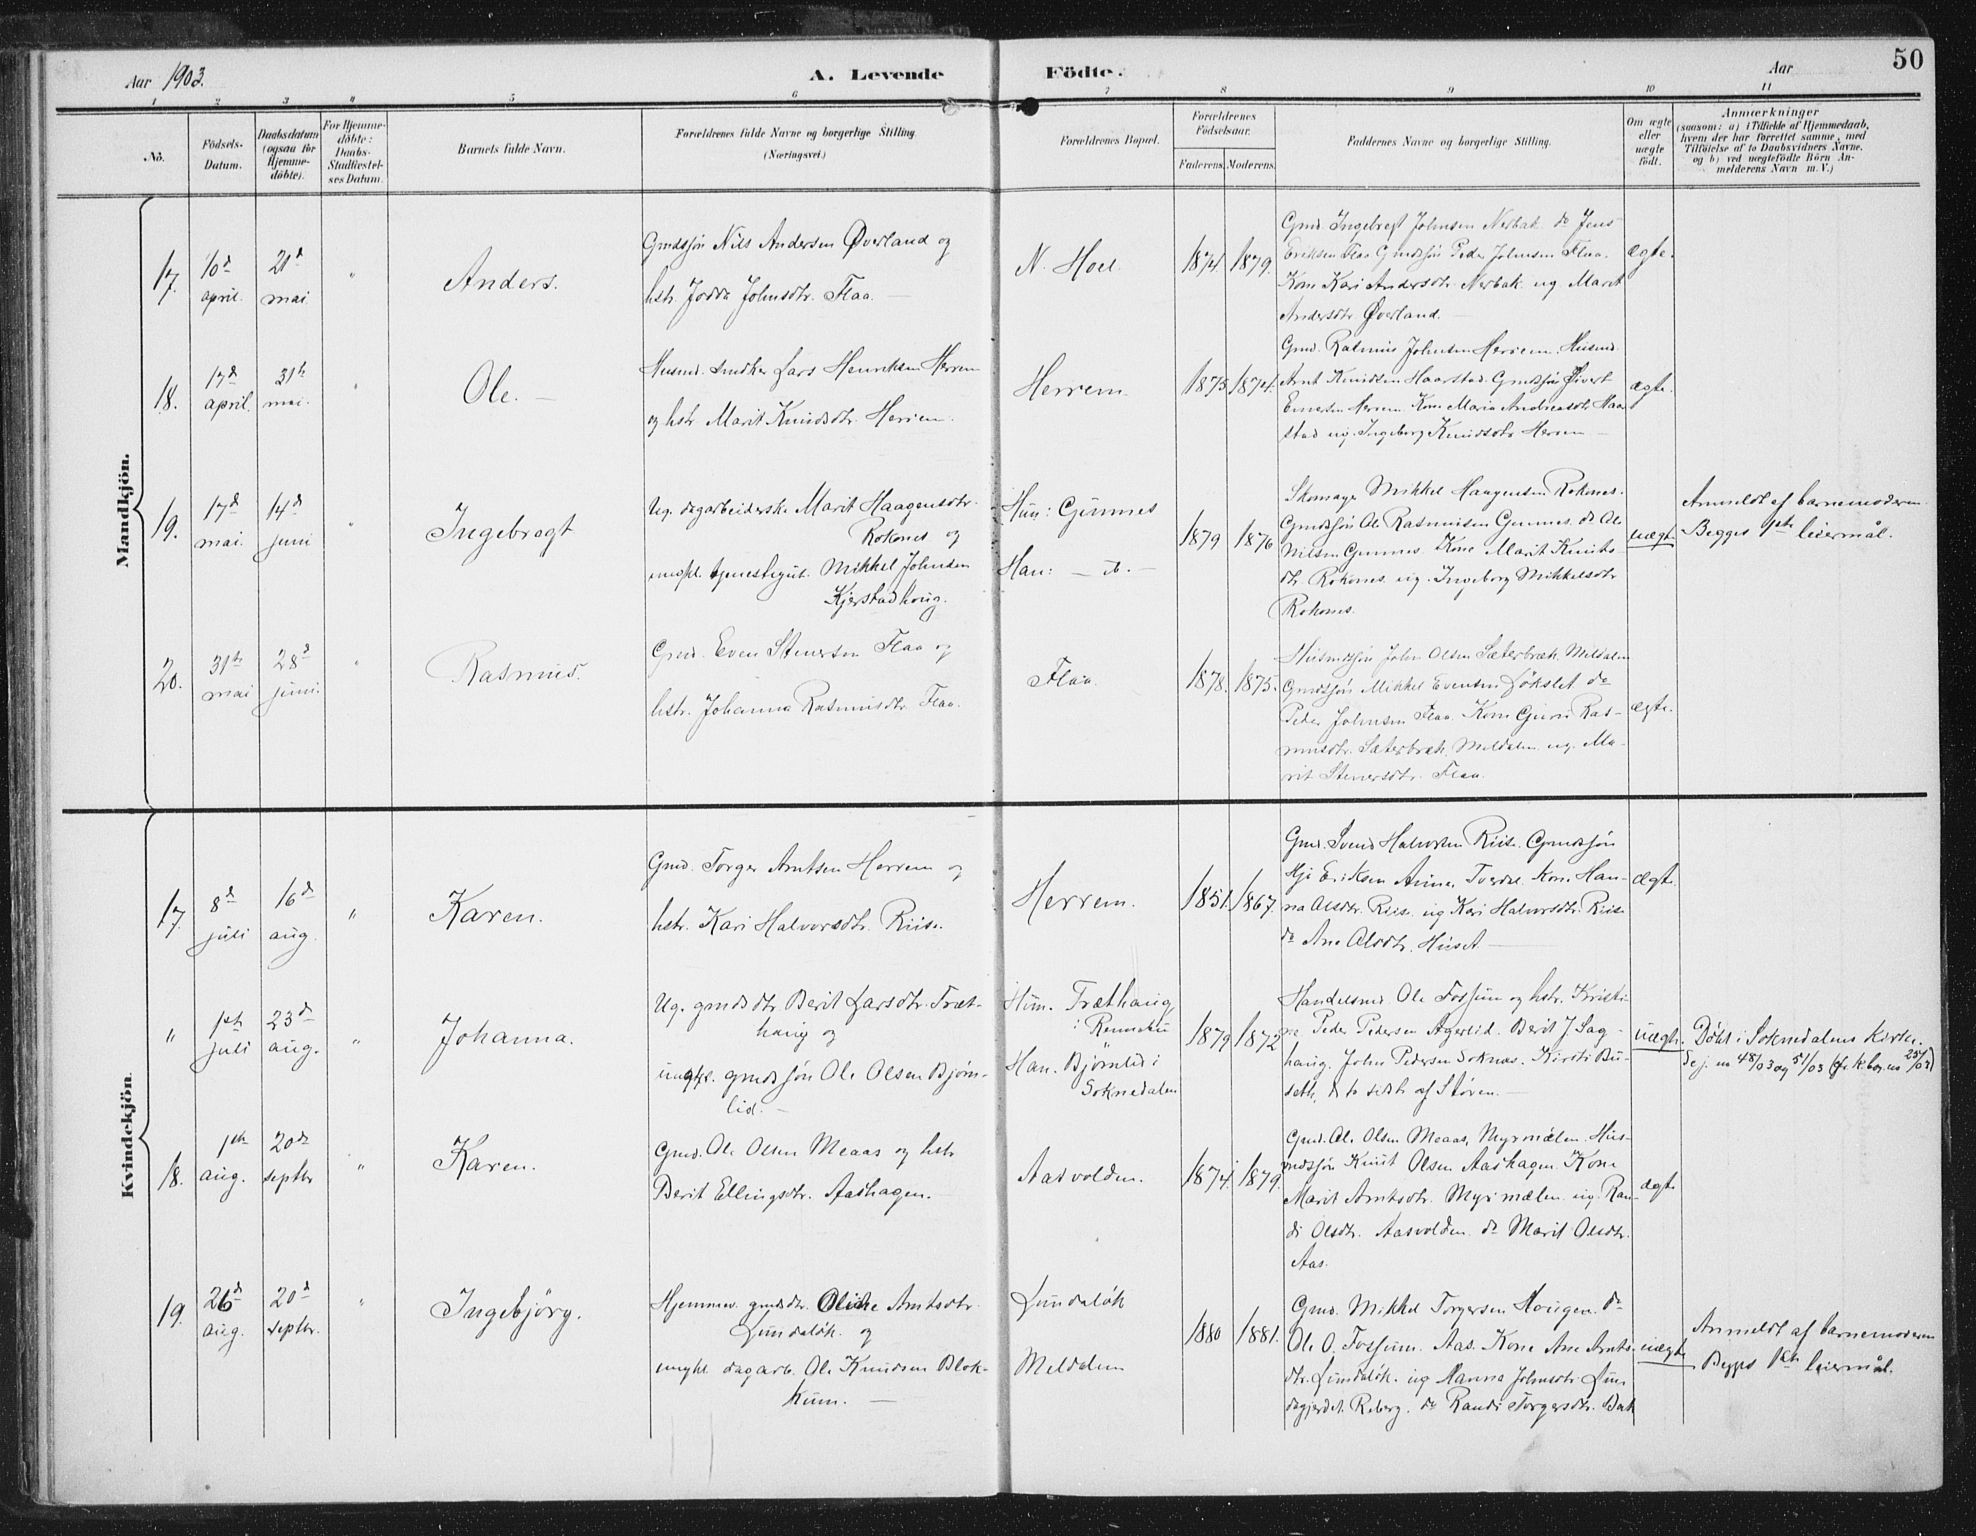 50
Aar 1903.
A. Levende Födte.
Aar
1 2 3 4 5 6 7 8 9 10 11
No.
Födsels-
Datum.
Daabsdatum
(ogsaa for
Hjemme-
döbte).
For Hjemme-
döbte:
Daabs-
Stadfæstel-
ses Datum.
Barnets fulde Navn.
Forældrenes fulde Navne og borgerlige Stilling.
(Næringsvei.)
Forældrenes Bopæl.
Forældrenes
Födselsaar.
Faderens. Moderens.
Faddernes Navne og borgerlige Stilling.
Om ægte
eller
uægte
födt.
Anmærkninger
(saasom: a) i Tilfælde af Hjemmedaab,
hvem der har forrettet samme, med
Tilföielse af to Daabsvidners Navne.
og b) ved uægtefödte Börn An-
melderens Navn m. V.)
Mandkjön.
17.
10d
april.
21d
mai
"
Anders.
Grndsjøn Nils Andersen Øverland og
hstr. Johnsdtr. Flaa. —
N. Hoel.
1874. 1879.
Gmd. Ingebregt Johnsen Nerbak do Jens
Eriksen Flaa Grmdsjøn Peder Johnsen Flaa.
Kone Kari Andersdtr. Nerbak ug Marit
Andersdtr Øverland. —
ægte.
18.
17d
april.
31te
mai.
"
Ole. —
Husmd. Snedker Lars Henriksen Herrem
og hstr. Marit Knudsdtr. Herrem.
Herrem.
1875 1874.
Gmd. Rasmus Johnsen Herrem. Husmd.
Arnt Knudsen Haarstad. Grmdsjøn Sivert
Herrem. Kone Maria Andreasdtr. Haar
stad ug. Ingeborg Knudsdtr Herrem —
ægte.
19.
17d
mai.
14d
juni
"
Ingebregt
Ug. dagarbeiderske Marit Haagensdtr.
Roknes og
ungkl. tjenestegut. Mikkel Johnsen
Kjerstadhaug.
Hun: Gunnes
Han: — do. —
1879 1876
Skomager Mikkel Haagensen Roknes.
Grmdsjøn Ole Rasmusen Gunnes. do Ole
Nilsen Gunnes. Kone Marit Knuts-
dtr. Roknes. ug. Ingeborg Mikkelsdtr
Roknes.
uægte
Anmeldt af barnemoderen
Begges 1ste leiermål.
20.
31te
mai
28d
juni.
"
Rasmus.
Gmd. Even Stenersen Flaa og
hstr. Johanna Rasmusdtr. Flaa.
Flaa.
1878. 1875.
Husmdsjøn John Olsen Sæterbræk, Meldalen
Grmdsjøn Mikkel Evensen Løkslet do
Peder Johnsen Flaa. Kone Guri Ras-
musdtr. Sæterbræk, Meldalen. ug. Ma-
rit Stenersdtr. Flaa.
ægte.
Kvindekjön.
17.
8d
juli
16d
aug.
"
Karen.
Gmd. Torger Arntsen Herrem og
hstr. Kari Halvorsdtr. Riise.
Herrem.
1851. 1867.
Gmd. Svend Halvorsen Riise. Grmdsjøn
Eriksen Kone Han-
na Olsdtr. Riise. ug Kari Halvorsdtr. Riise
do Ane Olsdtr. Huset —
ægte
"
1ste
juli
23d
aug.
"
Johanna.
Ug. grmdsdtr. Berit Larsdtr. Træt-
haug og
ungkl. grmdsjøn Ole Olsen Bjørn-
lid. —
Hun. Trethaug
i Rennebu
Han. Bjørnlid i
Soknedalen
1879 1872
Handelsmd. Ole Fossum og hstr. Kristi
ne, Peder Pedersen Agerlid. Berit J Sag-
haug. John Pedersen Soknæs. Kirsti Bu-
seth, de to sidste af Støren. —
uægte.
Døbt i Soknedalens kirke.
Sej. no 48/03 og 51/03
18.
1ste
aug.
20de
septbr
"
Karen.
Gmd. Ole Olsen Meaas og hstr
Berit Ellingsdtr. Aashagen.
Aasvolden.
1874. 1879.
Gmd. Ole Olsen Meaas, Myrmælen. Hus-
mdsjøn Knut Olsen Aashagen. Kone
Marit Arntsdtr. Myrmælen. ug. Ran-
di Olsdtr. Aasvolden do Marit Olsdtr.
Aas.
ægte
19.
26d
aug.
20d
septbr.
"
Ingebjörg.
Hjemmev. grmdsdtr. Oline Arntsdtr.
Lundaløk. og
ungkl. dagarb. Ole Knudsen Blok-
kum. —
Lundaløk
Meldalen
1880 1881.
Gmd. Mikkel Torgersen Hougen. do
Ole O. Fossum. Aas. Kone Ane Arnts-
dtr. Lundaløk. ug Hanna Johnsdtr. Lun
dagjerdet. Reberg. do Randi Torgersdtr. Bak
uægte
Anmeldt af barnemoderen
Begges 1ste leiermål.